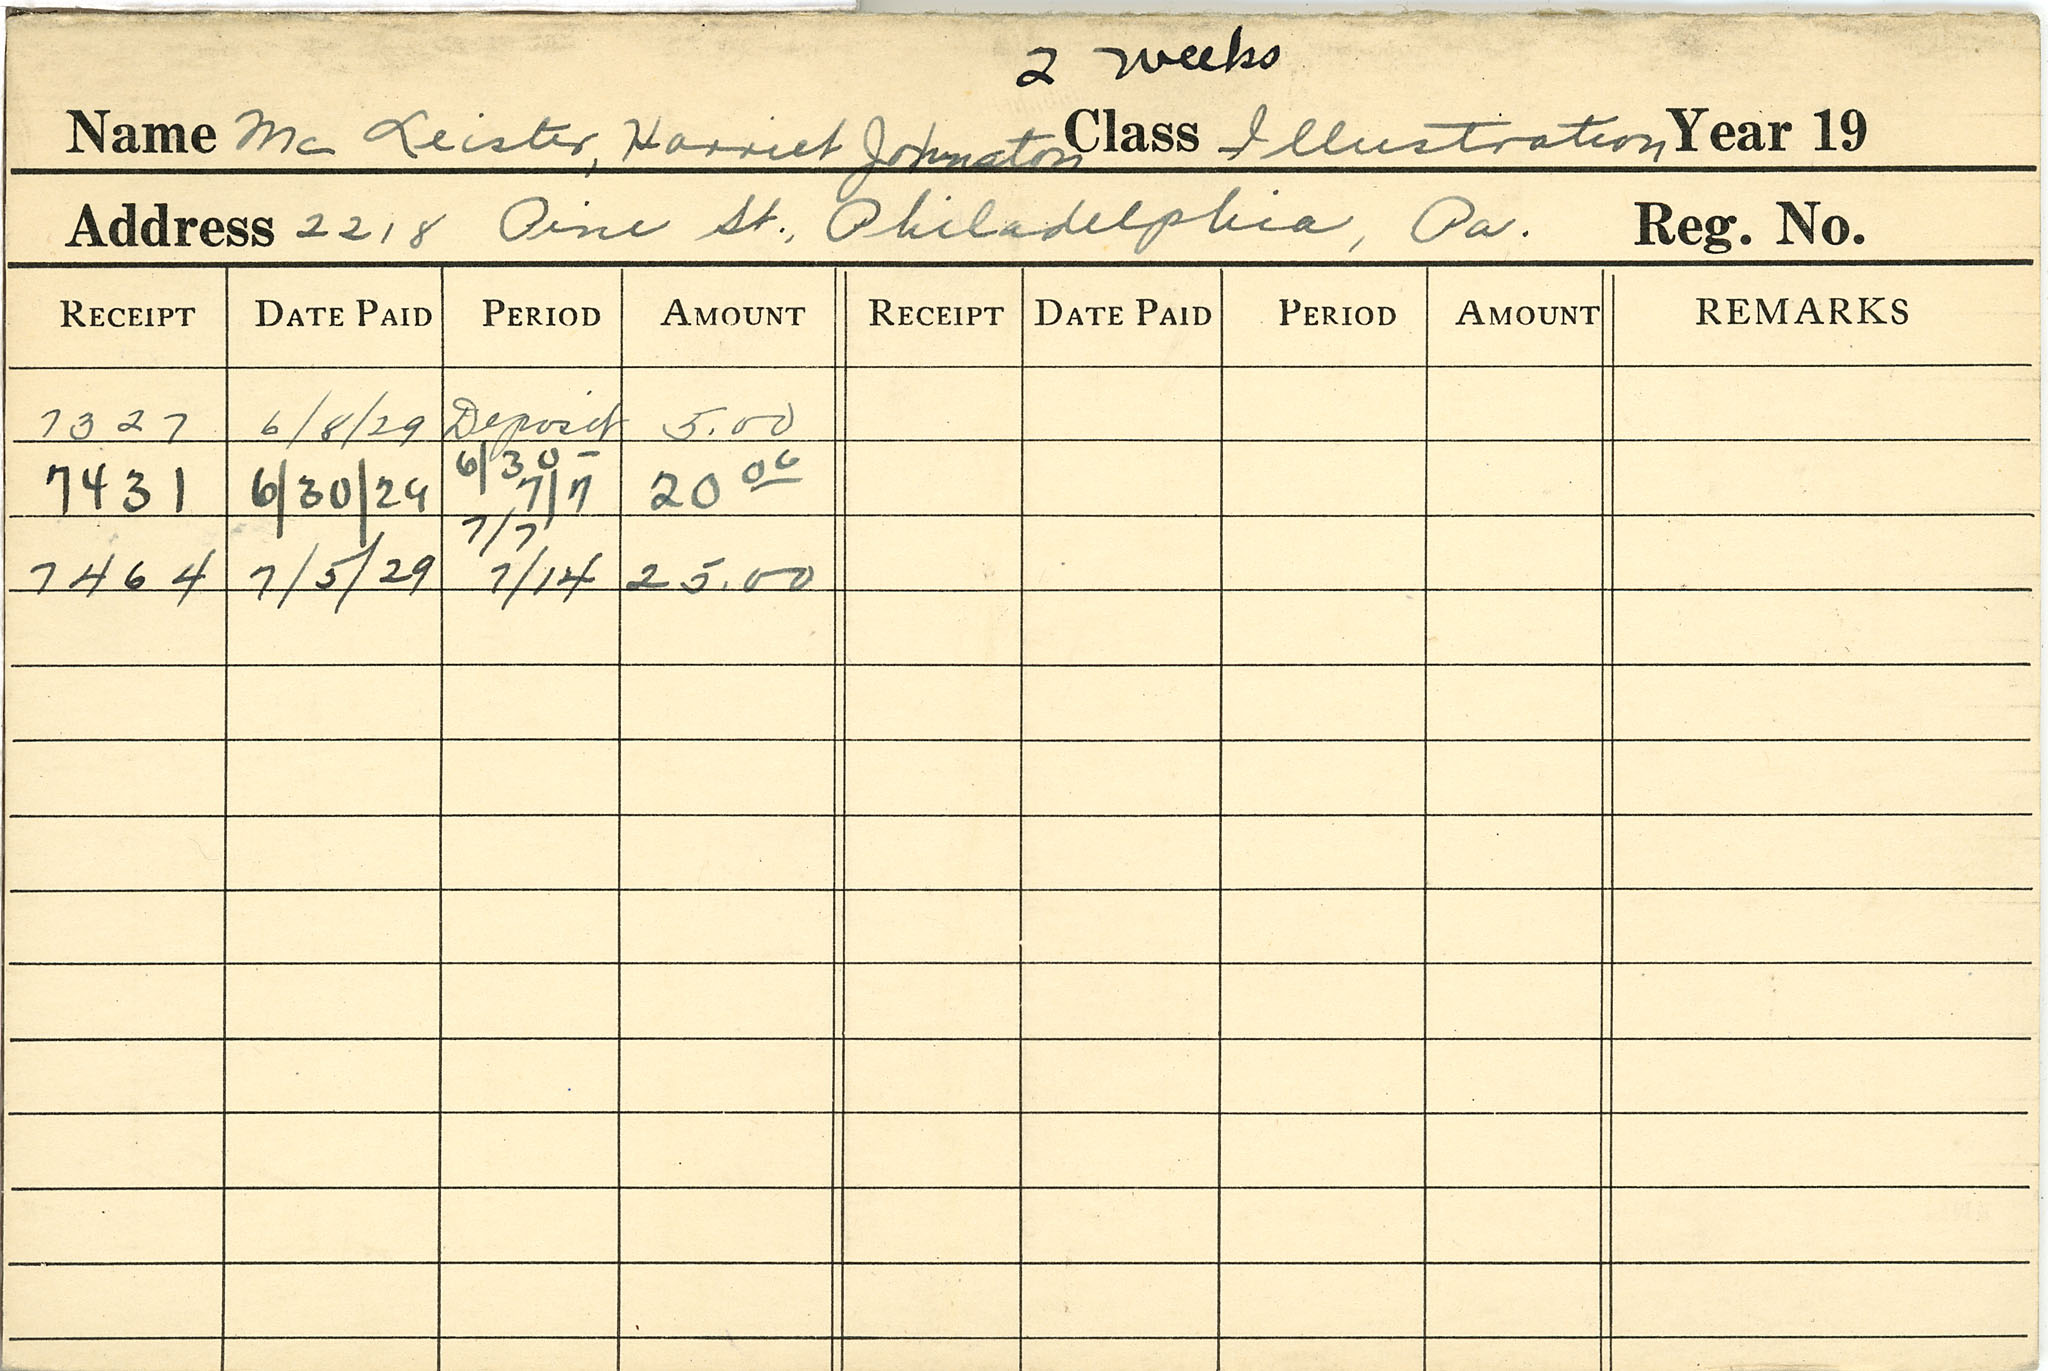 2 weeks
Name Mc Leister, Harriet Johnston Class Illustration Year 19
Address 2218 Pine St., Philadelphia, Pa. Reg. No.
RECEIPT DATE PAID PERIOD AMOUNT RECEIPT DATE PAID PERIOD AMOUNT REMARKS
7327 6/8/29 Deposit 5.00
7431 6/30/29 6/30- 7/7 20 00
7464 7/5/29 7/7 7/14 25.00